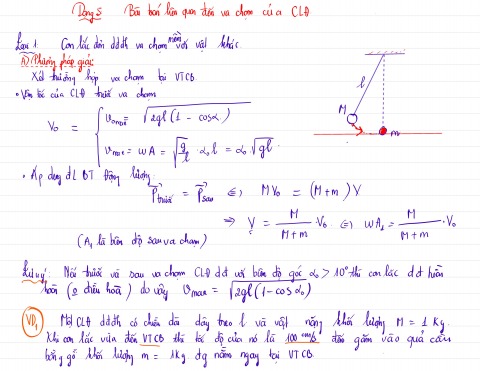 Dạng 5 Bài toán liên quan đến va chạm của CLĐ
Loại 1. Con lắc đơn dđđh va chạm mềm với vật khác.
a) Phương pháp giải:
Xét trường hợp va chạm tại VTCB.
• Vận tốc của CLĐ trước va chạm
V₀ = { v₀max = √2gl(1 - cosα₀)
vmax = ωA = √g/l . α₀l = α₀√gl
M
l
m
• Áp dụng đL BT Động lượng
P trước = P sau ⇔ MV₀ = (M+m)V
⇒ V = M/(M+m) . V₀ ⇔ ωA₁ = M/(M+m) . V₀
(A₁ là biên độ sau va chạm)
Lưu ý: Nếu trước và sau va chạm CLĐ dđ với biên độ góc α₀ > 10° thì con lắc dđ tuần
hoàn (o điều hoà) do vậy vmax = √2gl(1-cosα₀)
VD₁ Một CLĐ dđđh có chiều dài dây treo l và vật nặng khối lượng M = 1kg.
Khi con lắc vừa đến VTCB thì tốc độ của nó là 100 cm/s đến găm vào quả cầu
bằng gỗ khối lượng m = 1kg đg nằm ngay tại VTCB.